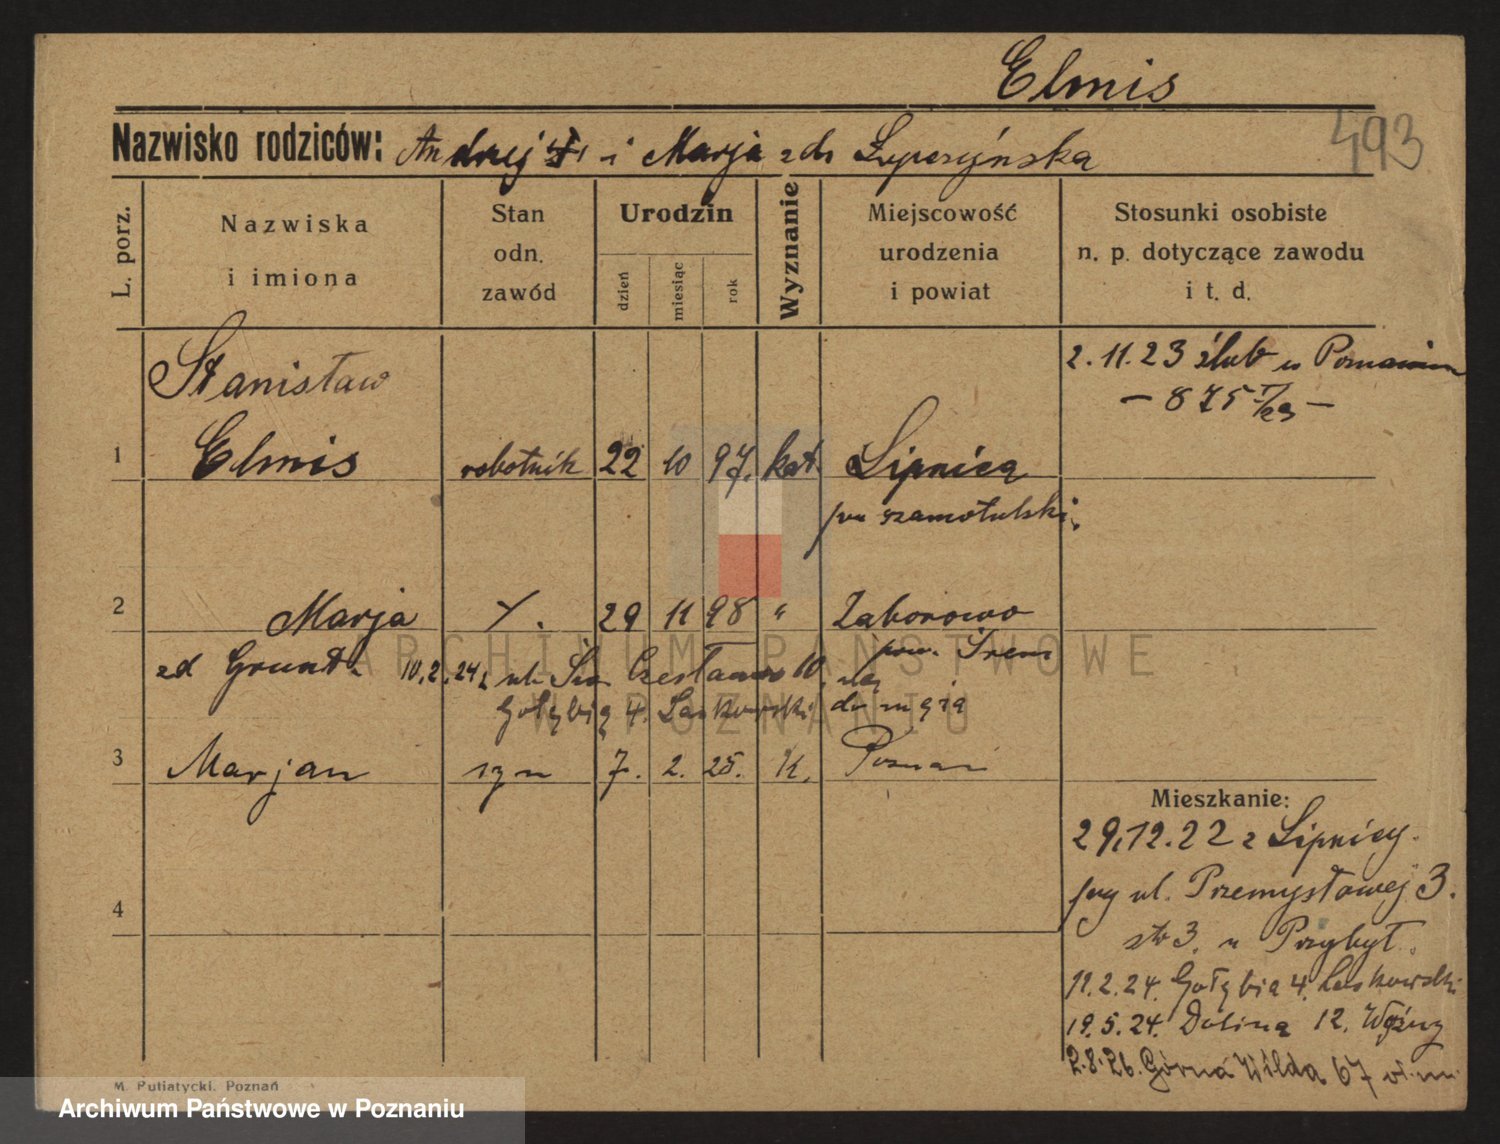 Elmis
493
Nazwisko rodziców: Andrzej i Marja z d.
L. porz.
Nazwiska i imiona
Stan odn. zawód
Urodzin
dzień
miesiąc
rok
Wyznanie
Miejscowość urodzenia i powiat
Stosunki osobiste n. p. dotyczące zawodu i t. d.
Stanisław
2.11.23 ślub w Poznaniu
- 875 -
1 Elmis robotnik 22 10 97. kat. Lipnica
szamotulski
2 Marja 29 11 98 " Zaborowo
zd 10.2.24. ul. Św. Czesława 10. pow. Śrem
Gołębią 4. Laskowski do męża
3 Marjan syn 7. 2. 25. K. Poznań
Mieszkanie:
29.12.22 z Lipnicy
ul. Przemysłowej 3.
3. u Przybył.
4
11.2.24. Gołębia 4. Laskowski
19.5.24. Dolina 12. Woźny
2.8.26. Górna Wilda 67
ARCHIWUM PAŃSTWOWE
W POZNANIU
M. Putiatycki, Poznań
Archiwum Państwowe w Poznaniu